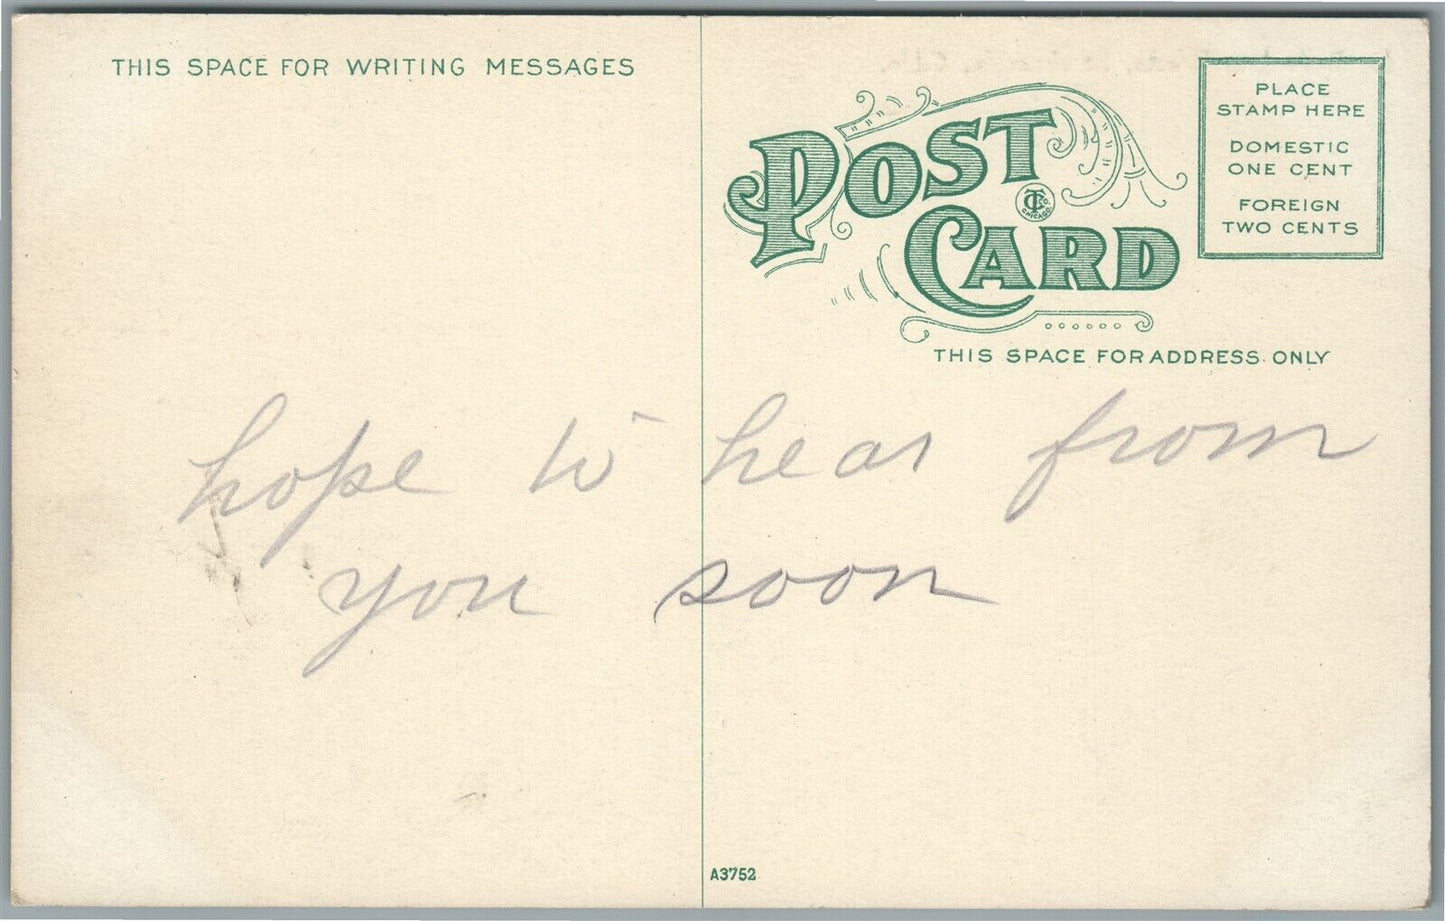 THIS SPACE FOR WRITING MESSAGES
POST CARD
CT Co. CHICAGO
PLACE
STAMP HERE
DOMESTIC
ONE CENT
FOREIGN
TWO CENTS
THIS SPACE FOR ADDRESS ONLY
hope to hear from
you soon
A3752